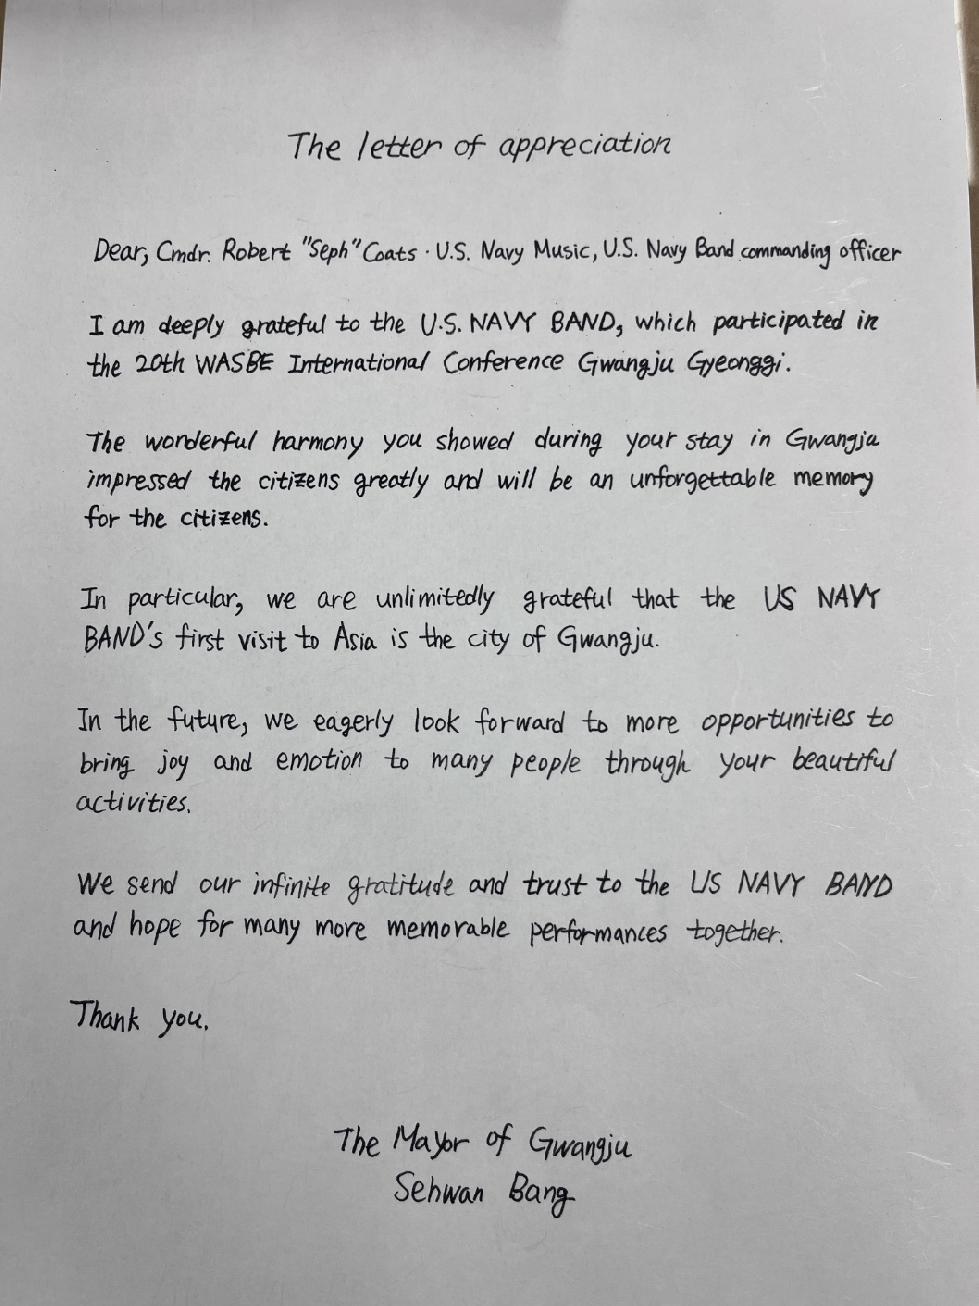 The letter of appreciation
Dear, Cmdr. Robert "Seph" Coats · U.S. Navy Music, U.S. Navy Band commanding officer
I am deeply grateful to the U.S. NAVY BAND, which participated in
the 20th WASBE International Conference Gwangju Gyeonggi.
The wonderful harmony you showed during your stay in Gwangju
impressed the citizens greatly and will be an unforgettable memory
for the citizens.
In particular, we are unlimitedly grateful that the US NAVY
BAND's first visit to Asia is the city of Gwangju.
In the future, we eagerly look forward to more opportunities to
bring joy and emotion to many people through your beautiful
activities.
We send our infinite gratitude and trust to the US NAVY BAND
and hope for many more memorable performances together.
Thank you.
The Mayor of Gwangju
Sehwan Bang